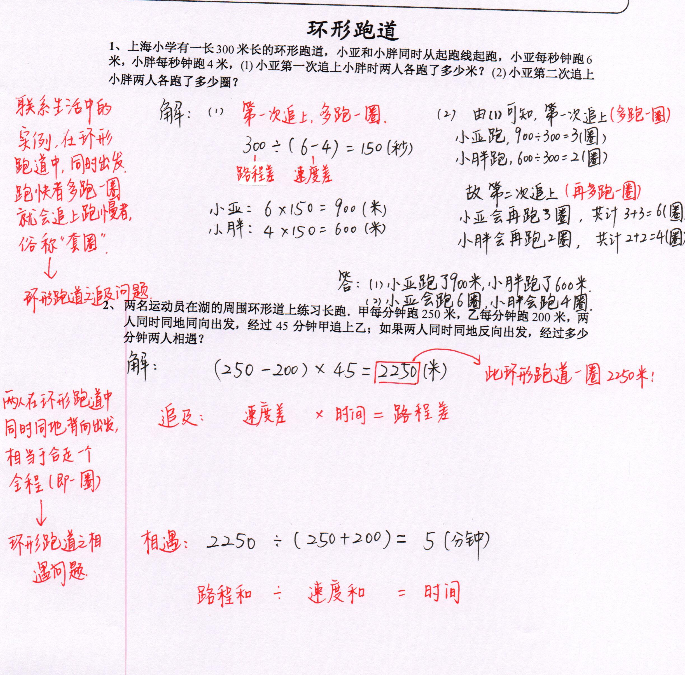 环形跑道
1、上海小学有一长300米长的环形跑道，小亚和小胖同时从起跑线起跑，小亚每秒钟跑6
米，小胖每秒钟跑4米，(1)小亚第一次追上小胖时两人各跑了多少米？(2)小亚第二次追上
小胖两人各跑了多少圈？
联系生活中的
实例，在环形
跑道中，同时出发，
跑快者多跑一圈
就会追上跑慢者，
俗称“套圈”.
↓
环形跑道之追及问题.
解：(1) 第一次追上，多跑一圈.
300÷(6-4)=150(秒)
路程差 速度差
小亚：6×150=900(米)
小胖：4×150=600(米)
(2) 由(1)可知，第一次追上(多跑一圈)
小亚跑，900÷300=3(圈)
小胖跑，600÷300=2(圈)
故 第二次追上(再多跑一圈)
小亚会再跑3圈，共计3+3=6(圈)
小胖会再跑2圈，共计2+2=4(圈)
答：(1)小亚跑了900米，小胖跑了600米.
(2)小亚会跑6圈，小胖会跑4圈.
2、两名运动员在湖的周围环形道上练习长跑．甲每分钟跑250米，乙每分钟跑200米，两
人同时同地同向出发，经过45分钟甲追上乙；如果两人同时同地反向出发，经过多少
分钟两人相遇？
解：(250-200)×45=2250(米) 此环形跑道一圈2250米！
追及：速度差 × 时间 = 路程差
两人在环形跑道中
同时同地背向出发，
相当于合走一个
全程(即一圈)
↓
环形跑道之相
遇问题.
相遇：2250 ÷(250+200)= 5(分钟)
路程和 ÷ 速度和 = 时间